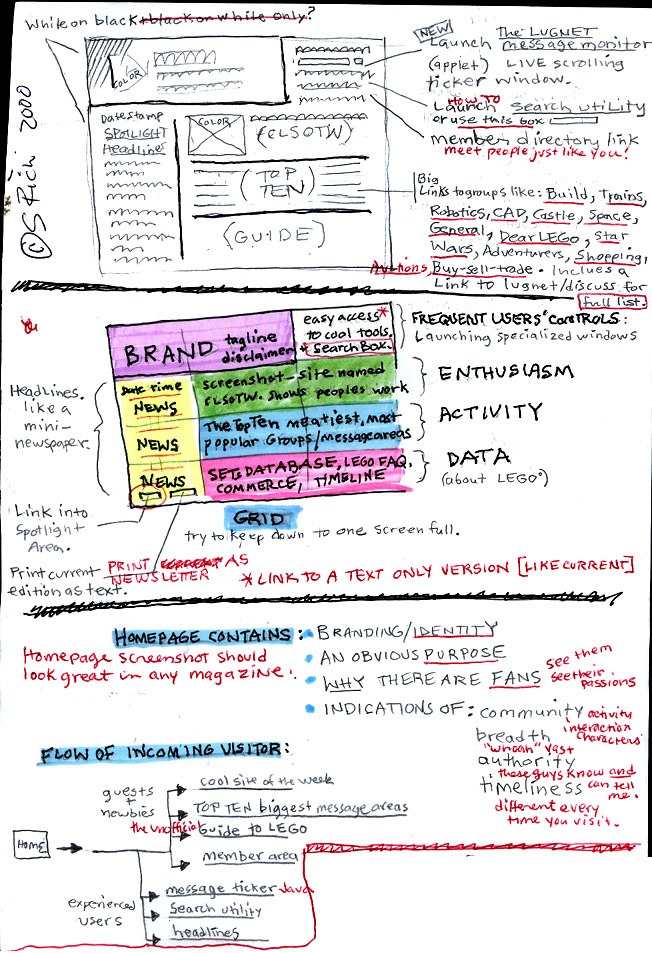 White on black + black on white only?
© S Rich 2000
COLOR
Datestamp
SPOTLIGHT
Headlines
COLOR
(CLSOTW)
(TOP
TEN)
(GUIDE)
NEW
The LUGNET
Launch message monitor
(applet) LIVE scrolling
ticker window.
HOW TO
Launch search utility
or use this box
member directory link
meet people just like you!
Big
Links to groups like: Build, Trains,
Robotics, CAD, Castle, Space,
General, Dear LEGO, Star
Wars, Adventurers, Shopping,
Auctions, Buy-sell-trade. Inclues a
Link to lugnet/discuss for
full list.
BRAND
tagline
disclaimer
easy access*
to cool tools.
+ Search Box.
FREQUENT USERS' CONTROLS:
Launching specialized windows
Headlines.
like a
mini-
newspaper.
Date Time
NEWS
NEWS
NEWS
screenshot - site named
CLSOTW. shows peoples work
The Top Ten meatiest, most
popular Groups/message areas
SETS DATABASE, LEGO FAQ.
COMMERCE, TIMELINE
ENTHUSIASM
ACTIVITY
DATA
(about LEGO®)
Link into
Spotlight
Area.
GRID
try to keep down to one screen full.
Print current
edition as text.
PRINT current AS
NEWSLETTER
* LINK TO A TEXT ONLY VERSION [LIKE CURRENT]
HOMEPAGE CONTAINS:
Homepage screenshot should
look great in any magazine.
• BRANDING/IDENTITY
• AN OBVIOUS PURPOSE
• WHY THERE ARE FANS
see them
see their
passions
• INDICATIONS OF: community
activity
interaction
characters
breadth
"whoah" vast
authority
these guys know and
can tell
me.
timeliness
different every
time you visit.
FLOW OF INCOMING VISITOR:
HOME
guests
+
newbies
cool site of the week
TOP TEN biggest message areas
the unofficial Guide to LEGO
member area
experienced
users
message ticker - Java
search utility
headlines